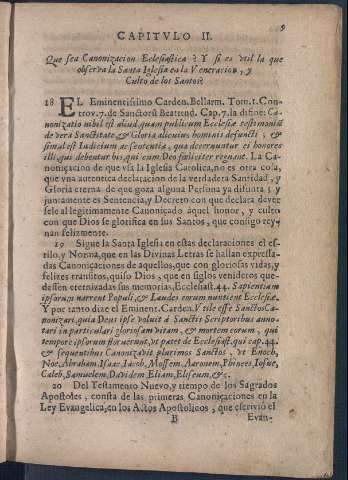 9
CAPITVLO II.
Que sea Canonizacion Eclesiastica? Y si es vtil la que
observa la Santa Iglesia en la Veneracion, y
Culto de los Santos?
18 EL Eminentissimo Carden. Bellarm. Tom. 1. Con-
trov. 7. de Sanctorũ Beatitud. Cap. 7. la difine: Ca-
nonizatio nihil est aliud, quam publicum Ecclesiæ testimoniũ
de verâ Sanctitate, & Gloria alicuius hominis defuncti, &
simul est Iudicium ac sententia, qua decernuntur ei honores
illi, qui debentur bis, qui cum Deo feliciter regnant. La Ca-
nonizacion de que vsa la Iglesia Catolica, no es otra cosa,
que vna autentica declaracion de la verdadera Santidad, y
Gloria eterna de que goza alguna Persona ya difunta; y
juntamente es Sentencia, y Decreto con que declara dever
sele al legitimamente Canonizado aquel honor, y culto
con que Dios se glorifica en sus Santos, que consigo rey-
nan felizmente.
19 Sigue la Santa Iglesia en estas declaraciones el es-
tilo, y Norma, que en las Divinas Letras se hallan expressa-
das Canonizaciones de aquellos, que con gloriosas vidas, y
felizes transitos, quiso Dios, que en siglos venideros que-
dassen eternizadas sus memorias, Ecclesiast. 44. Sapientiam
ipsorum narrent Populi, & Laudes eorum nuntient Ecclesiæ.
Y por tanto dize el Eminent. Carden. Vtile esse Sanctos Ca-
nonizari, quia Deus ipse voluit à Sanctis Scriptoribus anno-
tari in particulari gloriosam vitam, & mortem eorum, qui
tempore ipsorum floruerunt, vt patet de Ecclesiast. qui cap. 44.
& sequentibus Canonizavit plurimos Sanctos, vt Enoch,
Noe, Abraham, Isaac, Iacob, Moysem, Aaronem, Phinees, Iosue,
Caleb, Samuelem, Davidem Eliam, Eliseum, &c.
20 Del Testamento Nuevo, y tiempo de los Sagrados
Apostoles, consta de las primeras Canonizaciones en la
Ley Evangelica, en los Actos Apostolicos, que escrivió el
B Evan-